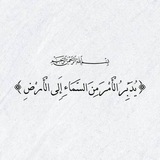 بسم الله الرحمن الرحيم
﴿ يُدَبِّرُ الْأَمْرَ مِنَ السَّمَاءِ إِلَى الْأَرْضِ ﴾